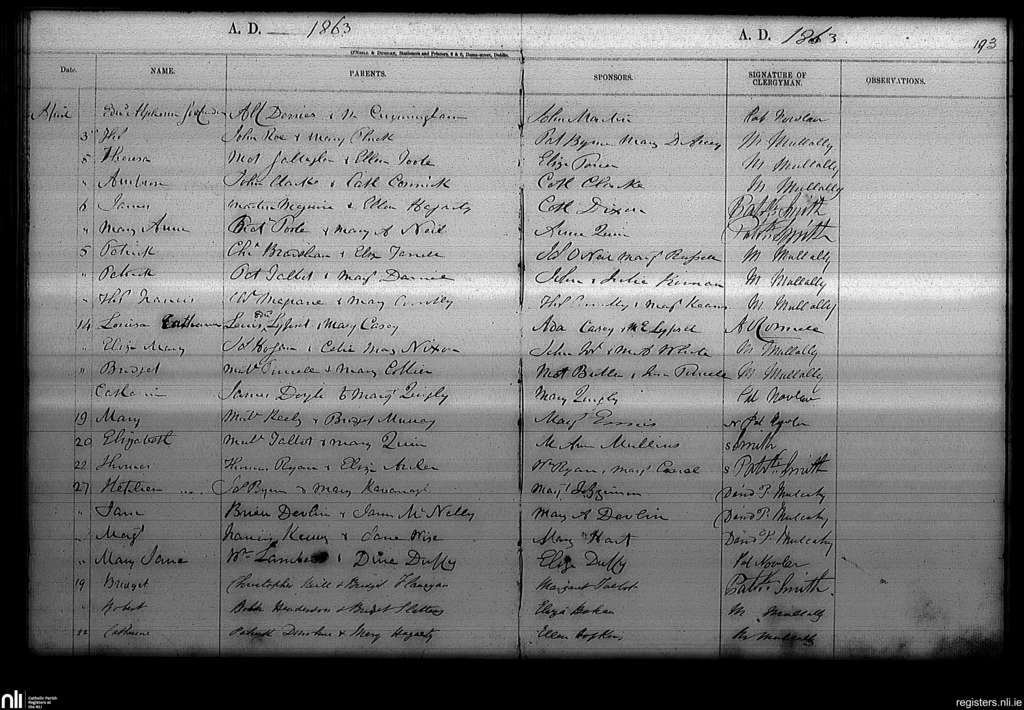 A. D. 1863 A. D. 1863. 193
O'Neill & Duggan, Stationers and Printers, Dame-street, Dublin.
Date. NAME. PARENTS. SPONSORS. SIGNATURE OF CLERGYMAN. OBSERVATIONS.
April & M Cunningham John Martin Pat Nowlan
3 Ths John Roe & Mary Pat Byrne Mary M Mullally
5 Theresa Mat Gallagher & Ellen Toole Eliza Power M Mullally
" Ambrose John Clarke & Cath Cormick Cath Clarke M Mullally
6 James Martin Maguire & Ellen Hagarty Cath Dixon Patk Smith
" Mary Anne Patk Toole & Mary A Neil Anne Quin Patk Smith
5 Patrick & Eliza Farrell O Neil Margt Russell M Mullally
" Patrick Pat Talbot & Margt John & Julia Kiernan M Mullally
" Ths Francis Magrane & Mary Connolly Ths Connolly & Margt Keane M Mullally
14 Louisa Catherine Louis Edwd Lyfsett & Mary Casey Ada Casey & Lyfsett
" Eliza Mary Jos Hogan & Celia Mary Nixon John Wm & M A White M Mullally
" Bridget Mattw & Mary Collier Mat Butler & M Mullally
Catherine James Doyle & Margt Quigly Mary Quigly Pat Nowlan
19 Mary Mattw Keely & Bridget Murray Margt Ennis Pat Nowlan
20 Elizabeth Mattw Talbot & Mary Quin M Ann Mullins Smith
22 Thomas Thomas Ryan & Eliza Wm Ryan, Margt Patk Smith
27 Jos Byrne & Mary Kavanagh Margt David P. Mulcahy
" Jane Brien Devlin & Jane McNelly Mary A Devlin David P. Mulcahy
" Margt Francis Kenny & Jane Wise Mary Hart David P. Mulcahy
" Mary Jane Wm Lambe & Duffy Eliza Duffy Pat Nowlan
19 Bridget Christopher & Bridget Flanagan Margaret Talbot Patk Smith
" Robert Henderson & Bridget Slattery Eliza M Mullally
22 Catherine Patrick Donohue & Mary Hagarty Ellen Hopkins M Mullally
nli Catholic Parish
Registers at
the NLI
registers.nli.ie